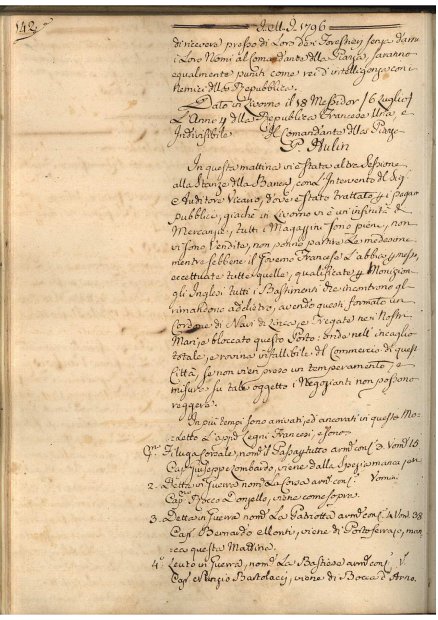 142.
I.M.I. 1796
di ricevere presso di Loro dei Forestieri senza darne
i Loro Nomi al Comandante della Piazza, saranno
egualmente puniti come rei d'intelligenza con i
Nemici della Repubblica.
Dato in Livorno il 18 Messidor /6 Luglio/
L'Anno 4 della Repubblica Francese Una, e
Indivisibile. Il Comandante della Piazza
P. Hulin
In questa mattina vi è stata altra Sessione
alla Stanza della Banca, con L'Intervento del Sig.
Auditore Vicario, dove è stato trattato i
pubblici, giachè in Livorno vi è un infinità di
Mercanzie, tutti i Magazzini sono pieni, non
vi sono Vendite, non ponno partire Le medesime
mentre sebbene il Governo Francese L'abbia
eccettuate tutte quelle, qualificate
gli Inglesi tutti i Bastimenti che incontrano gli
rimandono addietro, avendo questi formato un
Cordone di Navi di Linea, e Fregate nei Nostri
Mari, e bloccato questo Porto: onde nell'incaglio
totale, e rovina infallibile del Commercio di questa
Città, se non vien preso un temperamento, e
misure su tale oggetto i Negozianti non possono
reggere.
In più tempi sono arrivati, ed ancorati in questo Mo-
lo Legni Francesi, e sono
Filuga Corsale, nom. il Passaptutto arm. con 3 Uom. 15
Cap. Giuseppe Lombardo, viene dalla Spezia
2. Detta in Guerra nom. La Corsa arm. con Uomini
Cap. Rocco Donzello, viene come sopra.
3. Detta in Guerra nom. La Patriotta arm. con 4 Uom. 38
Cap. Bernardo Monti, viene di Portoferraio, man-
ca questa Mattina.
4. Leuto in Guerra, nom. La Bastiese arm. con
Cap. Nunzio Bastolacy, viene di Bocca d'Arno.